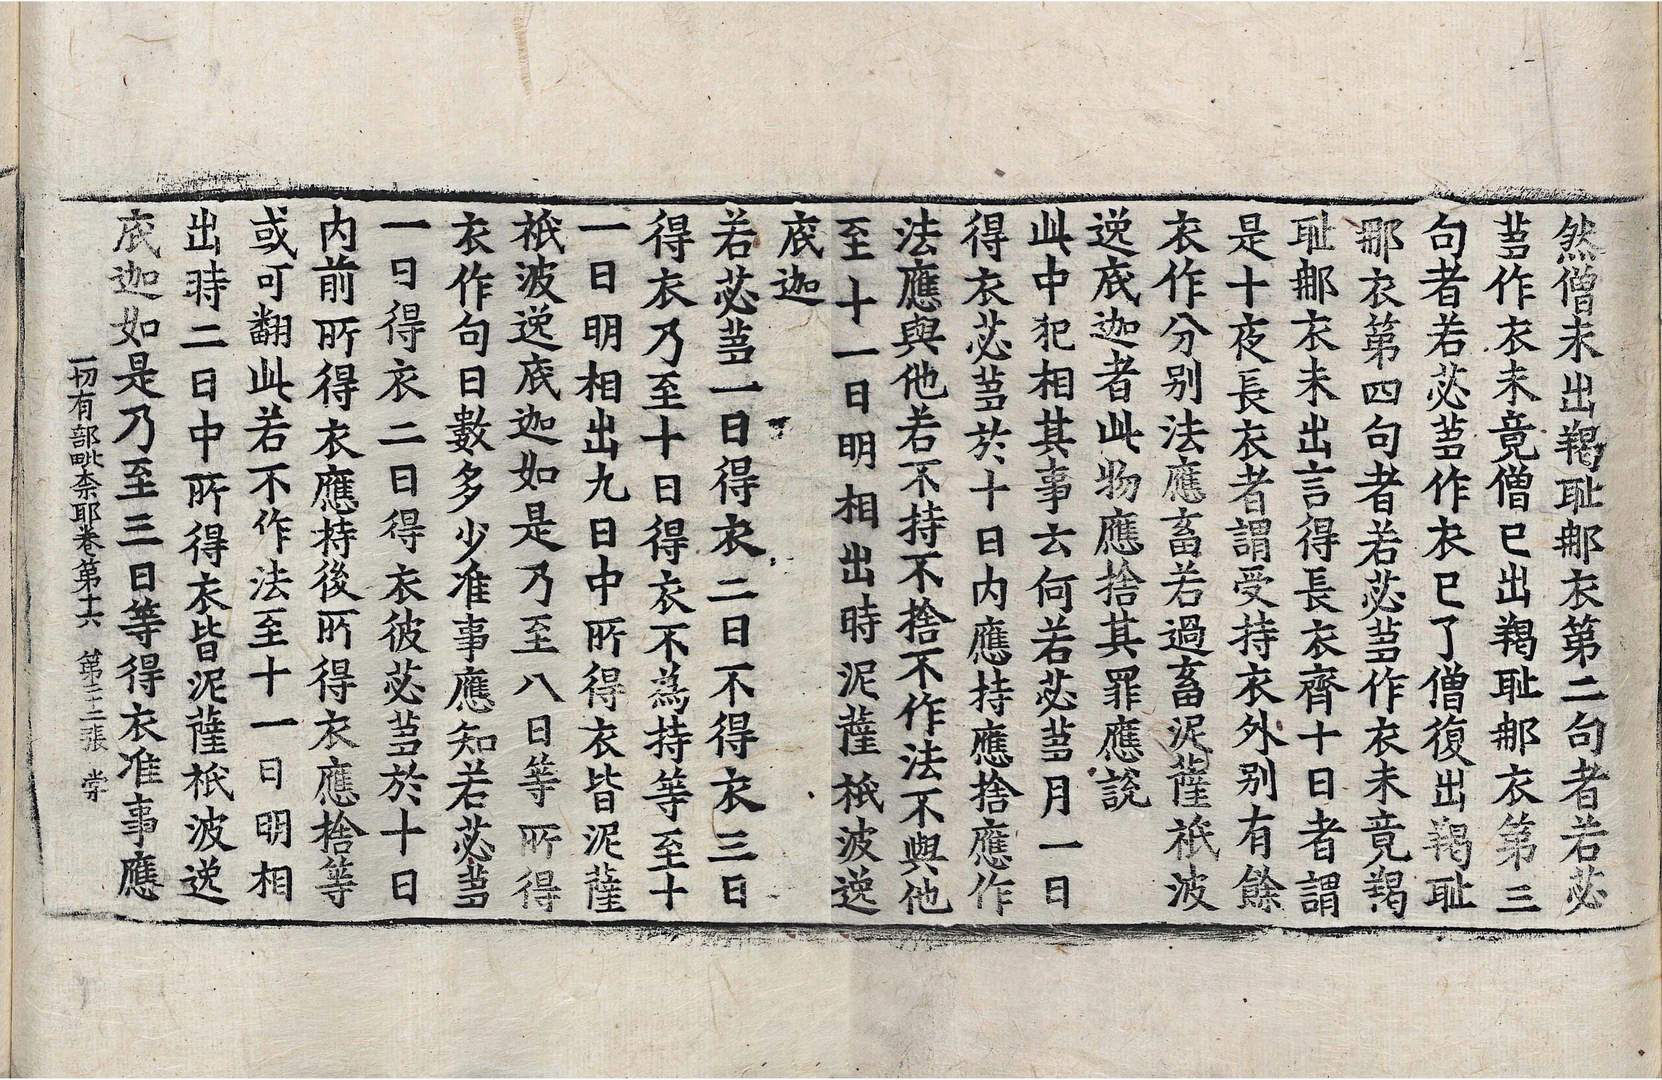 然僧未出羯恥郍衣第二句者若苾
蒭作衣未竟僧已出羯恥郍衣第三
句者若苾蒭作衣已了僧復出羯恥
郍衣第四句者若苾蒭作衣未竟羯
恥郍衣未出言得長衣齊十日者謂
是十夜長衣者謂受持衣外别有餘
衣作分别法應畜若過畜泥薩祇波
逸底迦者此物應捨其罪應說
此中犯相其事云何若苾蒭月一日
得衣苾蒭於十日内應持應捨應作
法應與他若不持不捨不作法不與他
至十一日明相出時泥薩祇波逸
底迦
若苾蒭一日得衣二日不得衣三日
得衣乃至十日得衣不為持等至十
一日明相出九日中所得衣皆泥薩
祇波逸底迦如是乃至八日等所得
衣作句日數多少准事應知若苾蒭
一日得衣二日得衣彼苾蒭於十日
内前所得衣應持後所得衣應捨等
或可翻此若不作法至十一日明相
出時二日中所得衣皆泥薩祇波逸
底迦如是乃至三日等得衣准事應
一切有部毗奈耶卷第十六 第二十二張 甞